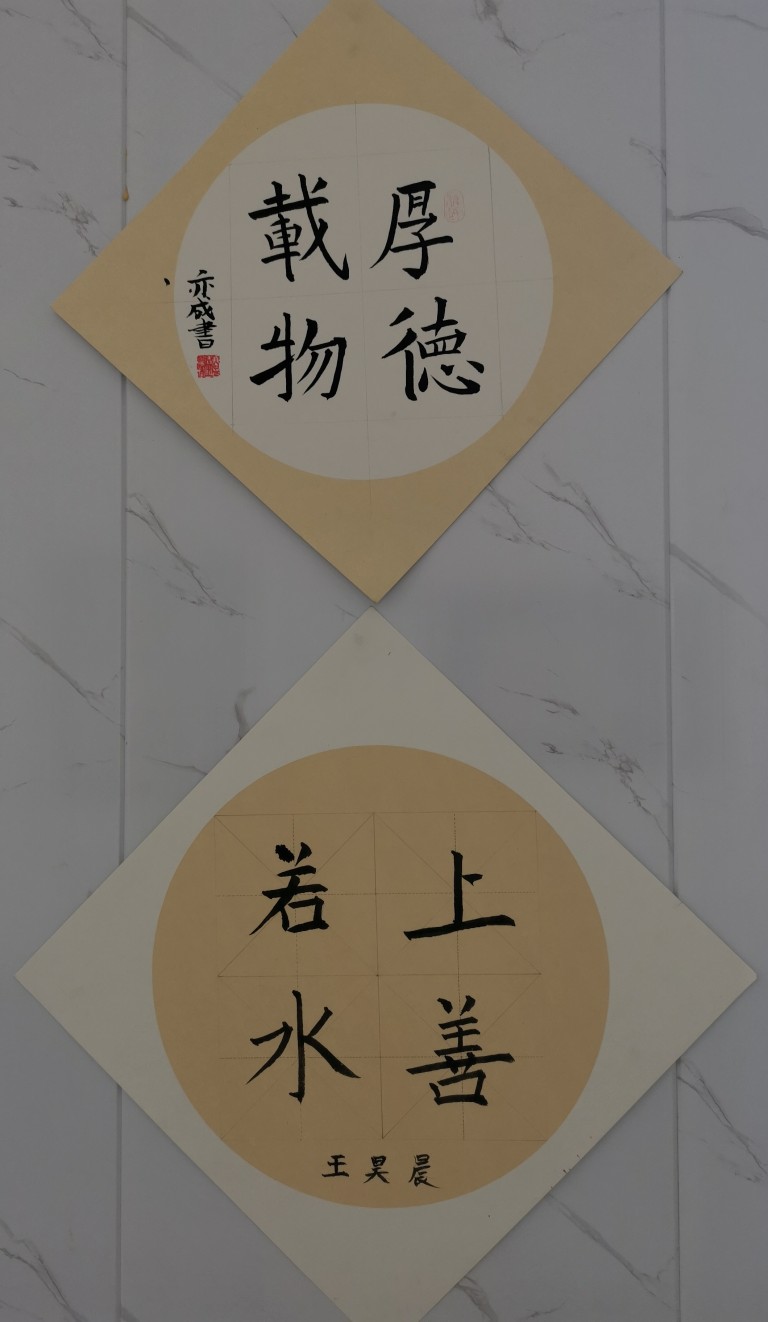 厚德
載物
亦成書
上善
若水
王昊晨